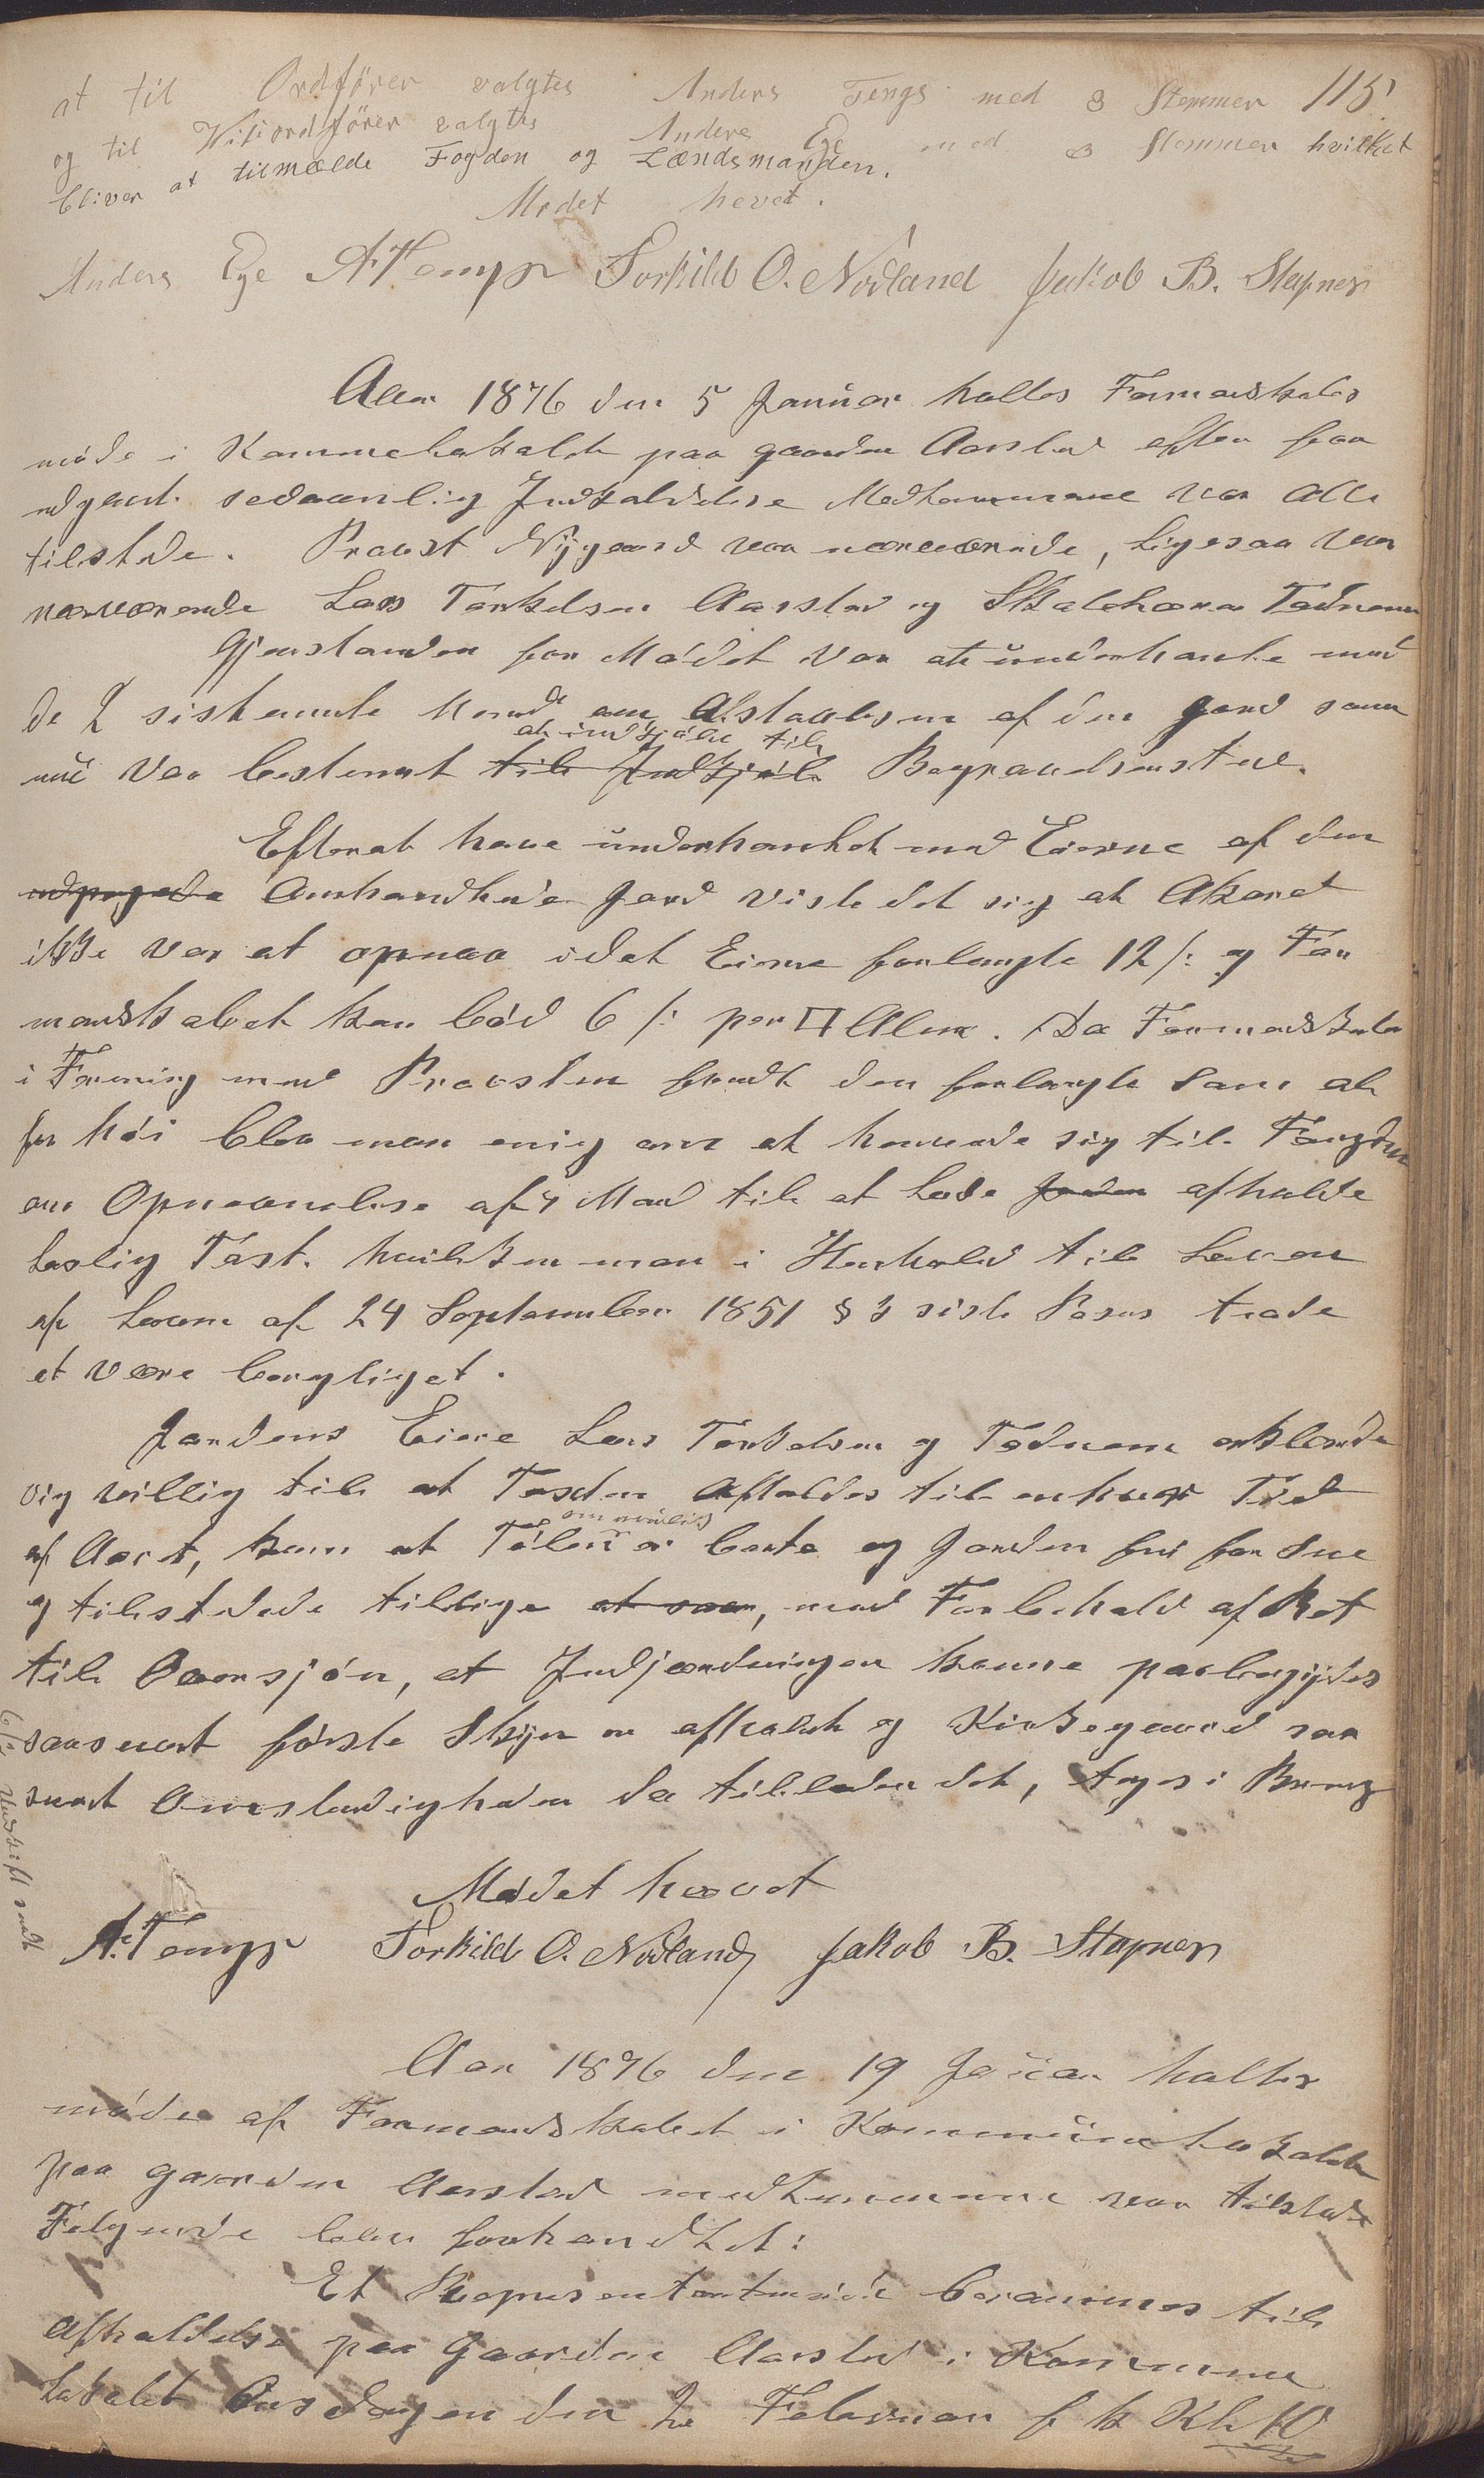 115
at til Ordfører valgtes Anders Tengs med 3 Stemmer
og til Visiordfører valgtes Anders Eye med 3 Stemmer hvilket
bliver at tilmælde Fogden og Lændsmanden.
Mødet hevet.
Anders Eye ATengs Torkild O. Nodland Jakob B. Stapnes
Aar 1876 den 5 Januar holtes Formandskabs
møde i Kommelokalet paa gaarden Aarstad efter foru
udgaaet sedvanlig Indkaldelse Medlemmerne var alle
tilstede. Provst Nÿgaard var nærværende, Ligesaa var
nærværende Lars Torkelsen Aarstad og Skoleholder Tednem
Gjenstanden for Mødet var at underhanle med
de 2 sistnemte Mænd om Afstaaelsen af den jord som
nu var bestemt at indkjøbe til Begravelsessted.
Efterat have underhanlet med Eierne af den
Omhandlede Jord viste det sig at Akord
ikke var at opnaa idet Eierne forlangte 12 /: og For
mandskabet kun bød 6 /: per □ Alen. Da Formandskabet
i Forening med Provsten fandt den forlangte Sum alt
for høi blev man enig om at henvende sig til Fougden
om Opnævnelse af 4 Mænd til at lade afholde
lovlig Taxt. hvilken man i Henhold til Loven
af Loven af 24 September 1851 § 3 siste Passus trode
at være berettiget.
Jordens Eiere Lars Torkelsen og Tednem erklærede
sig villig til at Taxten Afholdes til enhver Tid
af Aaret, kun at Tælen om muligt er borte og Jorden fri for Sne
og tilstedede tillige, med Forbehold af Ret
til Overskjøn, at Indjærdningen kunne paabegÿdes
saasnart første Skjøn er afholdt og Kirkegaard saa
snart Omstændigheden da tillader det, tages i Brug
Mødet hævet
A. Tengs Torkild O. Nodland Jakob B. Stapnes
Udskrift sendt
Aar 1876 den 19 Januar holtes
møde af Formandskabet i Kommünelokalet
paa gaarden Aarstad medlemmerne var tilstede
Følgende blev forhandlet:
Et Representantmøde berammes til
Afholdelse paa Gaarden Aarstad i Kommune
lokalet Onsdagen den 2 Februar f k Kl 10